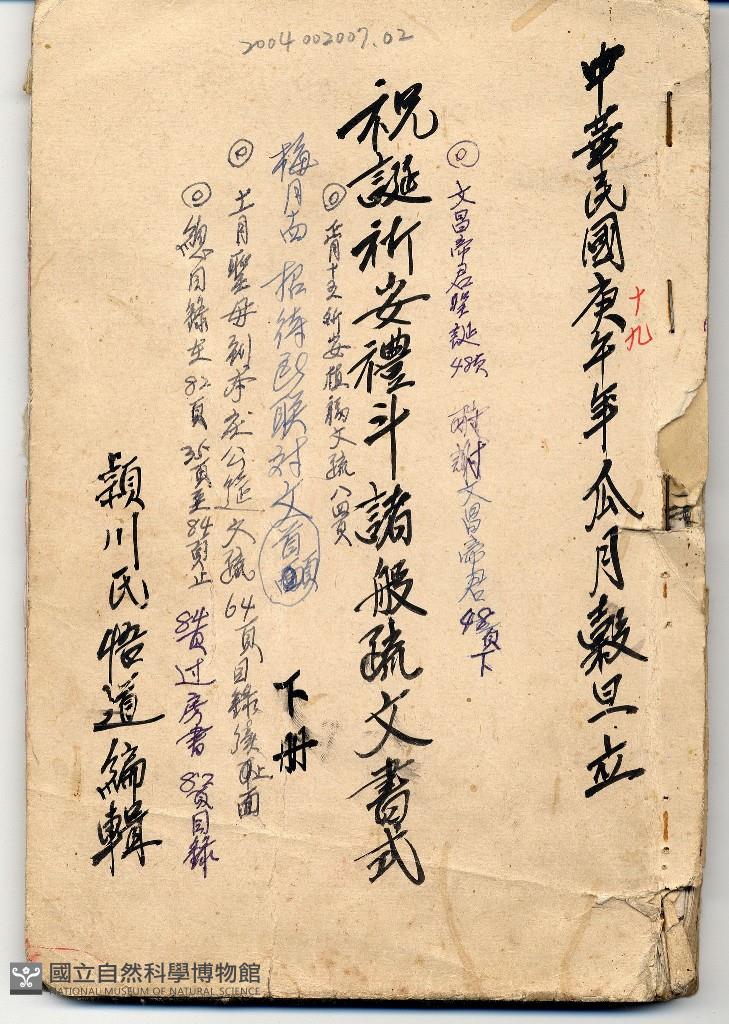 2004002007.02
中華民國庚午年瓜月穀旦立
十九
◎文昌帝君聖誕48頁 酧謝文昌帝君48頁下
祝誕祈安禮斗諸般疏文書式
下册
祈安植福文疏八四頁
梅月 招待 联対文
◎十一月聖母 文疏64頁目錄後 面
◎總目錄在82頁 35頁至84頁止 84頁过房書 82頁目錄
潁川氏悟道編輯
國立自然科學博物館
NATIONAL MUSEUM OF NATURAL SCIENCE